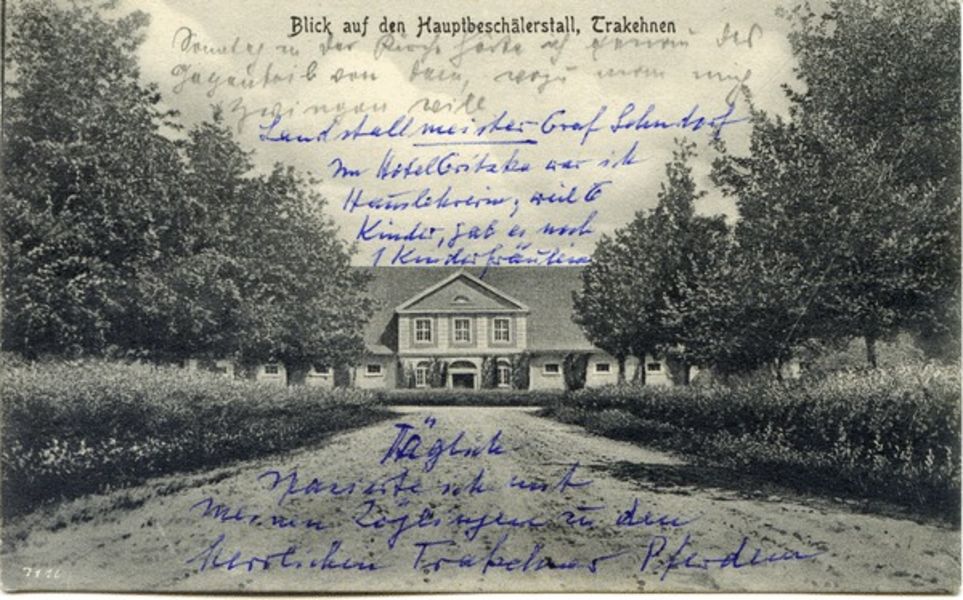 Blick auf den Hauptbeschälerstall, Trakehnen
Sonntag in der Kirche hörte ich genau das
Gegenteil von dem, wozu man mich
zwingen will
Landstallmeister Graf Lehndorf
Im Hotel war ich
Hauslehrerin, weil 6
Kinder, gab es noch
1 Kinderfräulein
Täglich
spazierte ich mit
meinen Zöglingen zu den
herrlichen Trakehner Pferden